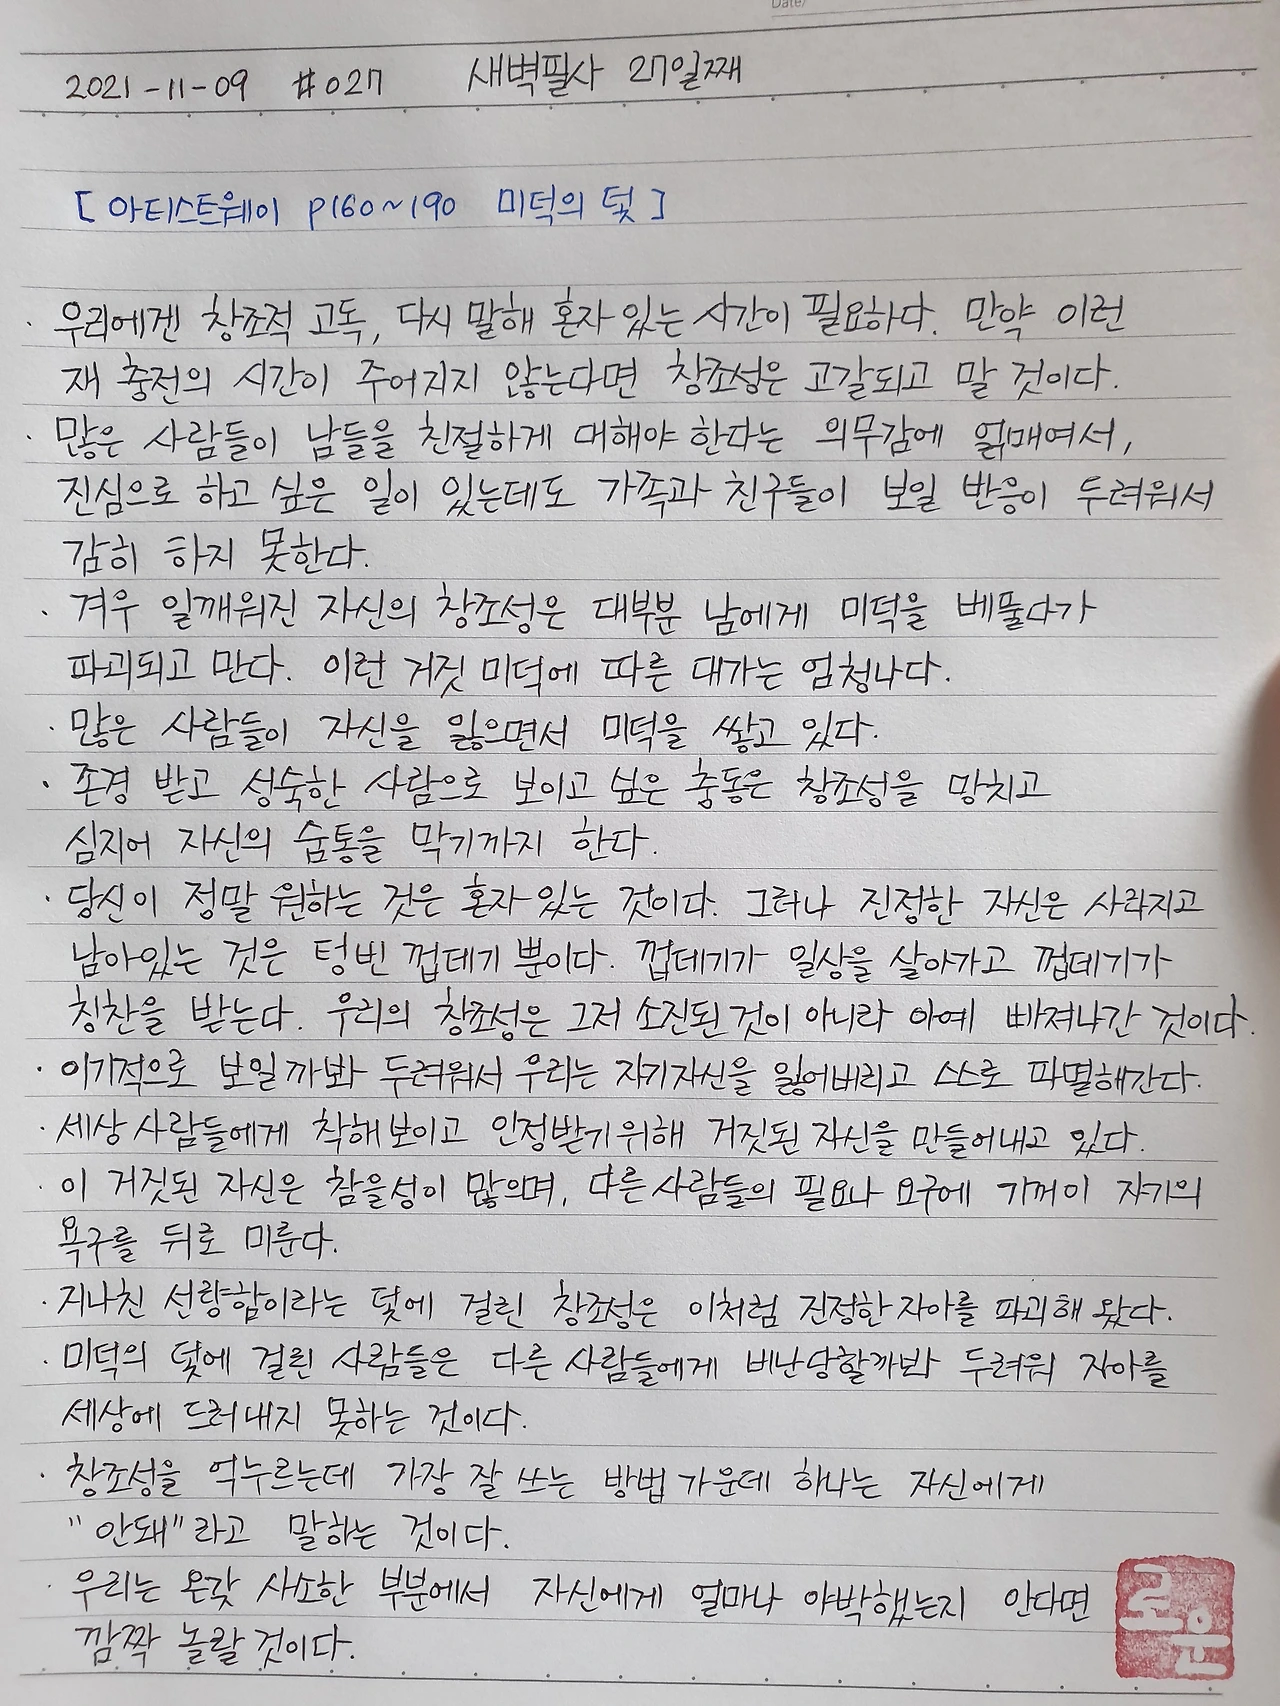 Date/
2021-11-09 #027 새벽필사 27일째
[ 아티스트웨이 p160~190 미덕의 덫 ]
· 우리에겐 창조적 고독, 다시 말해 혼자 있는 시간이 필요하다. 만약 이런
재 충전의 시간이 주어지지 않는다면 창조성은 고갈되고 말 것이다.
· 많은 사람들이 남들을 친절하게 대해야 한다는 의무감에 얽매여서,
진심으로 하고 싶은 일이 있는데도 가족과 친구들이 보일 반응이 두려워서
감히 하지 못한다.
· 겨우 일깨워진 자신의 창조성은 대부분 남에게 미덕을 베풀다가
파괴되고 만다. 이런 거짓 미덕에 따른 대가는 엄청나다.
· 많은 사람들이 자신을 잃으면서 미덕을 쌓고 있다.
· 존경 받고 성숙한 사람으로 보이고 싶은 충동은 창조성을 망치고
심지어 자신의 숨통을 막기까지 한다.
· 당신이 정말 원하는 것은 혼자 있는 것이다. 그러나 진정한 자신은 사라지고
남아있는 것은 텅빈 껍데기 뿐이다. 껍데기가 일상을 살아가고 껍데기가
칭찬을 받는다. 우리의 창조성은 그저 소진된 것이 아니라 아예 빠져나간 것이다.
· 이기적으로 보일까봐 두려워서 우리는 자기자신을 잃어버리고 스스로 파멸해간다.
· 세상 사람들에게 착해보이고 인정받기위해 거짓된 자신을 만들어내고 있다.
· 이 거짓된 자신은 참을성이 많으며, 다른 사람들의 필요나 요구에 기꺼이 자기의
욕구를 뒤로 미룬다.
· 지나친 선량함이라는 덫에 걸린 창조성은 이처럼 진정한 자아를 파괴해 왔다.
· 미덕의 덫에 걸린 사람들은 다른 사람들에게 비난당할까봐 두려워 자아를
세상에 드러내지 못하는 것이다.
· 창조성을 억누르는데 가장 잘 쓰는 방법 가운데 하나는 자신에게
"안돼"라고 말하는 것이다.
· 우리는 온갖 사소한 부분에서 자신에게 얼마나 야박했는지 안다면
깜짝 놀랄 것이다.
로운